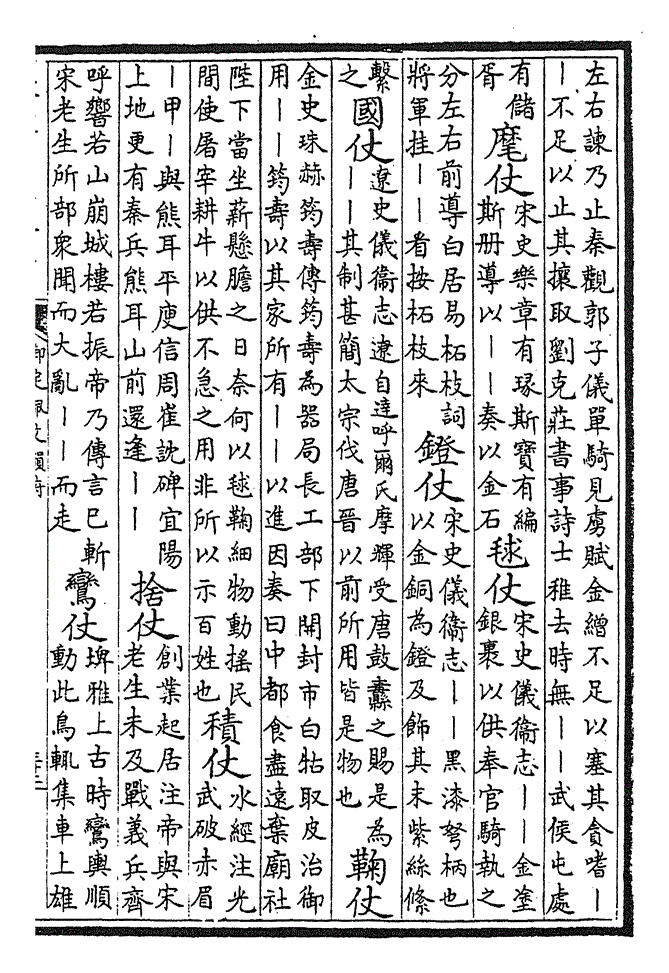 左右諫乃止秦觀郭子儀單騎見虜賦金繒不足以塞其貪嗜丨
丨不足以止其攘取劉克莊書事詩士稚去時無丨丨武侯屯處
有儲
胥
麾仗
宋史樂章有琭斯寶有編
斯册導以丨丨奏以金石
毬仗
宋史儀衞志丨丨金塗
銀裹以供奉官騎執之
分左右前導白居易柘枝詞
將軍拄丨丨看按柘枝來
鐙仗
宋史儀衞志丨丨黑漆弩柄也
以金銅為鐙及飾其末紫絲絛
繫
之
國仗
遼史儀衞志遼自達呼爾氏摩輝受唐鼓纛之賜是為
丨丨其制甚簡太宗伐唐晉以前所用皆是物也
鞠仗
金史珠赫筠壽傳筠壽為器局長工部下開封市白牯取皮治御
用丨丨筠壽以其家所有丨丨以進因奏曰中都食盡遠棄廟社
陛下當坐薪懸膽之日奈何以毬鞠細物動搖民
間使屠宰耕牛以供不急之用非所以示百姓也
積仗
水經注光
武破赤眉
丨甲丨與熊耳平庾信周崔訦碑宜陽
上地更有秦兵熊耳山前還逢丨丨
捨仗
創業起居注帝與宋
老生未及戰義兵齊
呼響若山崩城樓若振帝乃傳言已斬
宋老生所部衆聞而大亂丨丨而走
鸞仗
埤雅上古時鸞輿順
動此鳥輒集車上雄
御定佩文韻府